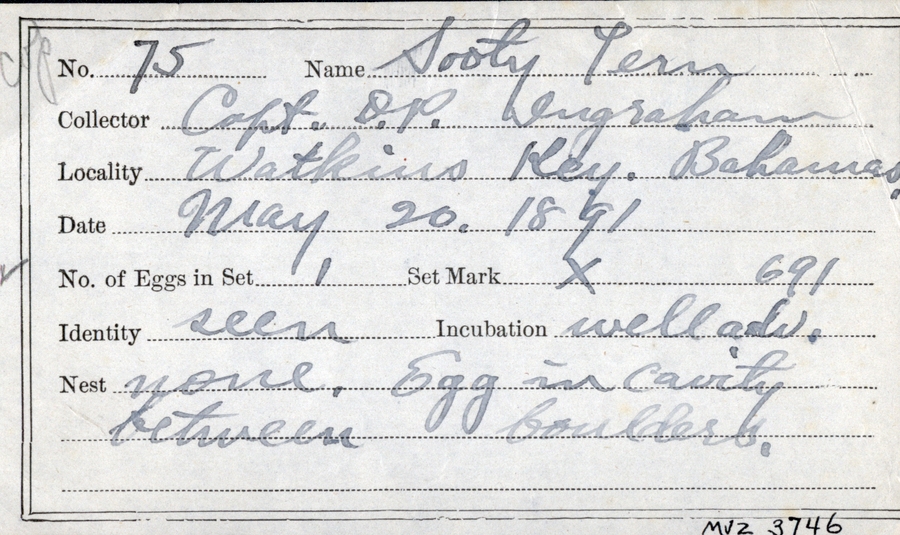 No. 75 Name Sooty Tern
Collector Capt. D.P. Ingraham
Locality Watkins Key. Bahamas.
Date May 20. 1891
No. of Eggs in Set 1 Set Mark X 691
Identity seen Incubation well adv.
Nest none. Egg in cavity
between boulders.
MVZ 3746